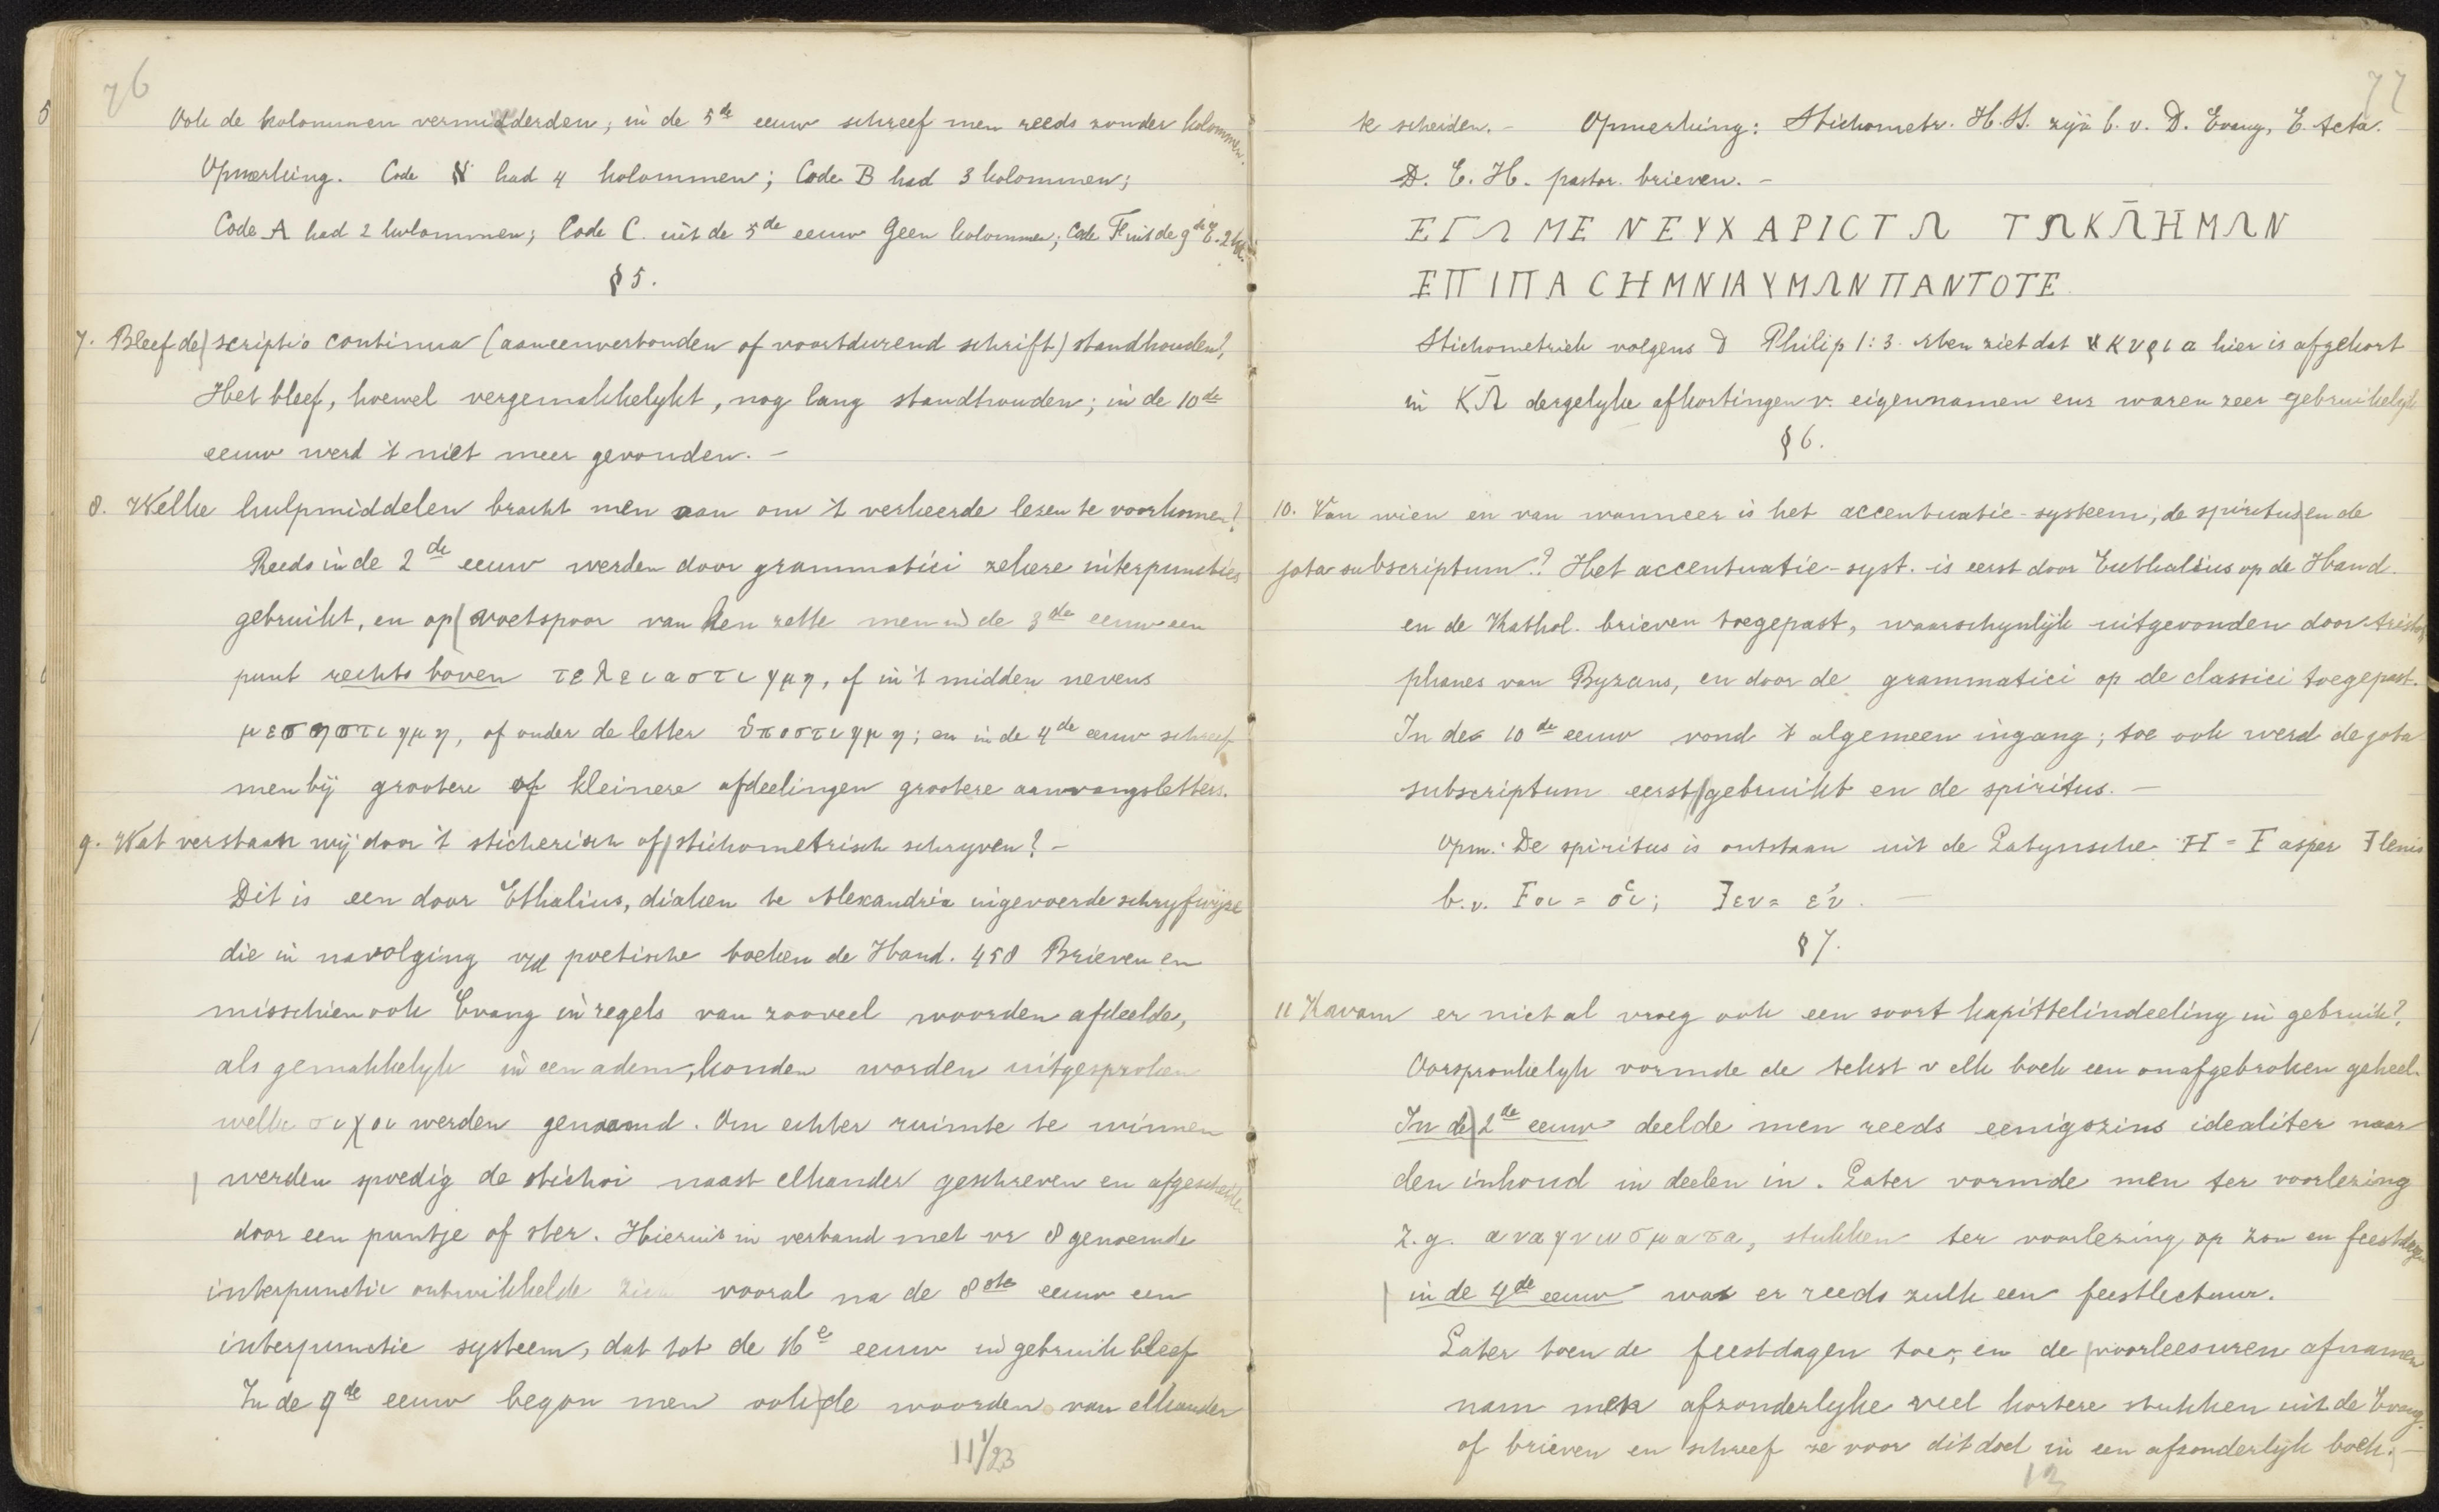 76
Ook de kolommen vermidderden; in de 5de eeuw schreef men reeds zonder kolommen.
Opmerking. Code א had 4 kolommen; Code B had 3 kolommen;
Code A had 2 kolommen; Code C. uit de 5de eeuw Geen kolommen; Code F uit de 9de E. 2 kol.
§ 5.
7. Bleef de scriptio continua (aaneenverbonden of voortdurend schrift) standhouden?,
Het bleef, hoewel vergemakkelykt, nog lang standhouden; in de 10de
eeuw werd 't niet meer gevonden. –
8. Welke hulpmiddelen bracht men aan om 't verkeerde lezen te voorkomen?
Reeds in de 2de eeuw werden door grammatici zekere interpuncties
gebruikt, en op voetspoor van hen zette men in de 3de eeuw een
punt rechts boven τελειαστιγμη, of in 't midden nevens
μεσηστιγμη, of onder de letter ὑποστιγμη; en in de 4de eeuw schreef
men bij grootere of kleinere afdeelingen grootere aanvangsletters.
9. Wat verstaan wij door 't sticherisch of stichometrisch schryven? –
Dit is een door Ethalius, diaken te Alexandria ingevoerde schryfwijze
die in navolging v/d poetische boeken de Hand. 458 Brieven en
misschien ook Evang in regels van zooveel woorden afdeelde,
als gemakkelyk in een adem, konden worden uitgesproken
welke στιχοι werden genaamd. Om echter ruimte te winnen
werden spoedig de stichoi naast elkander geschreven en afgescheiden
door een puntje of ster. Hieruit in verband met vr 8 genoemde
interpunctie ontwikkelde zich vooral na de 8ste eeuw een
interpunctie systeem, dat tot de 16e eeuw in gebruik bleef
In de 9de eeuw begon men ook de woorden van elkander
11 1/23
77
te scheiden. – Opmerking: Stichometr. H.S. zijn b.v. D. Evang, E. Acta.
D. E. H. pastor. brieven. –
ΕΓΩ ΜΕ ΝΕΥΧΑΡΙCΤΩ ΤΩΚΩ̄ΗΜΩΝ
ΕΠΙΠΑCΗΜΝΙΑΥΜΩΝΠΑΝΤΟΤΕ
Stichometrich volgens D Philip 1:3. Men ziet dat κυρια hier is afgekort
in ΚΩ̄ dergelyke afkortingen v. eigennamen enz waren zeer gebruikelyk
§ 6.
10. Van wien en van wanneer is het accentuatie-systeem; de spiritus en de
jota subscriptum? Het accentuatie-syst. is eerst door Euthalius op de Hand.
en de Kathol. brieven toegepast, waarschynlijk uitgevonden door Aristo
phanes van Byzans, en door de grammatici op de classici toegepast.
In de 10de eeuw vond 't algemeen ingang; toe ook werd de jota
subscriptum eerst gebruikt en de spiritus. –
Opm: De spiritus is ontstaan uit de Latynsche H = Ⱶ asper ꟻ lenis
b.v. Ⱶοι = οἱ; ꟻεν = ἐν. –
§ 7.
11 Kwam er niet al vroeg ook een soort kapittelindeeling in gebruik?,
Oorspronkelyk vormde de tekst v elk boek een onafgebroken geheel.
In de 2de eeuw deelde men reeds eenigszins idealiter naar
den inhoud in deelen in. Later vormde men ter voorlezing
z.g. αναγνωσματα, stukken ter voorlezing op zon en feestdagen
in de 4de eeuw was er reeds zulk een feestlectuur.
Later toen de feestdagen toe-, en de voorleesuren afnamen
nam men afzonderlyke veel kortere stukken uit de Evang.
of brieven en schreef ze voor dit doel in een afzonderlyk boek. –
12